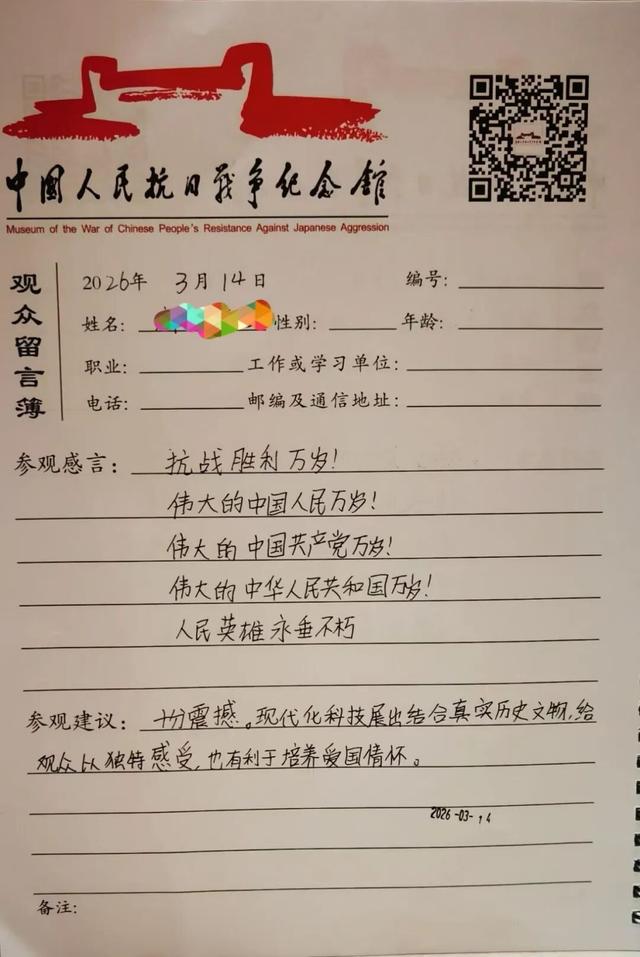 中國人民抗日戰争纪念館
Museum of the War of Chinese People's Resistance Against Japanese Aggression
观众留言簿
2026年 3月14日 编号:
姓名: 性别: 年龄:
职业: 工作或学习单位:
电话: 邮编及通信地址:
参观感言: 抗战胜利万岁!
伟大的中国人民万岁!
伟大的中国共产党万岁!
伟大的中华人民共和国万岁!
人民英雄永垂不朽
参观建议: 十分震撼。现代化科技展出结合真实历史文物,给
观众以独特感受,也有利于培养爱国情怀。
2026-03-14
备注: